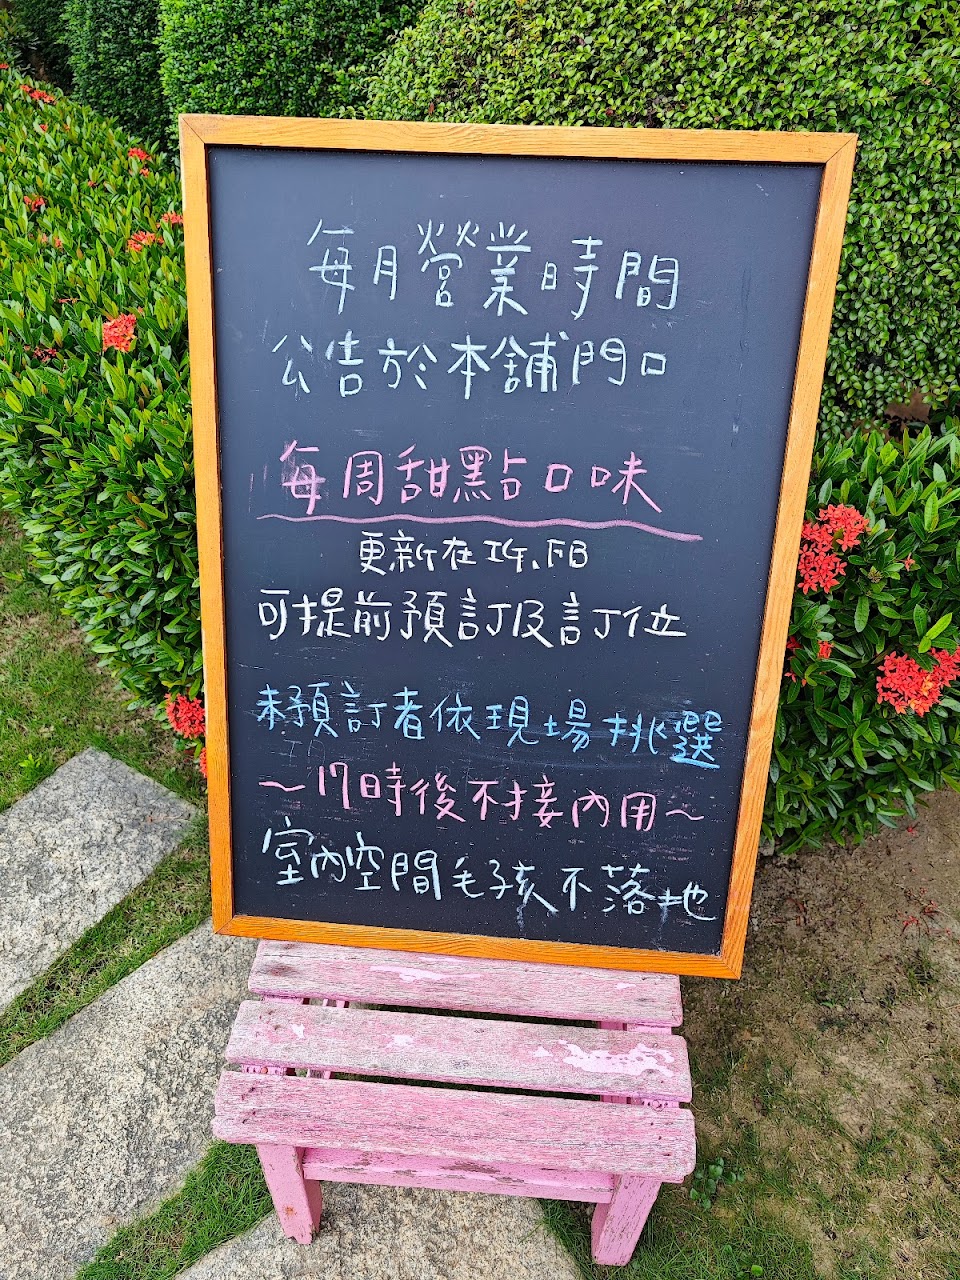 每月營業時間
公告於本舖門口
每周甜點口味
更新在IG、FB
可提前預訂及訂位
未預訂者依現場挑選
～17時後不接內用～
室內空間毛孩不落地